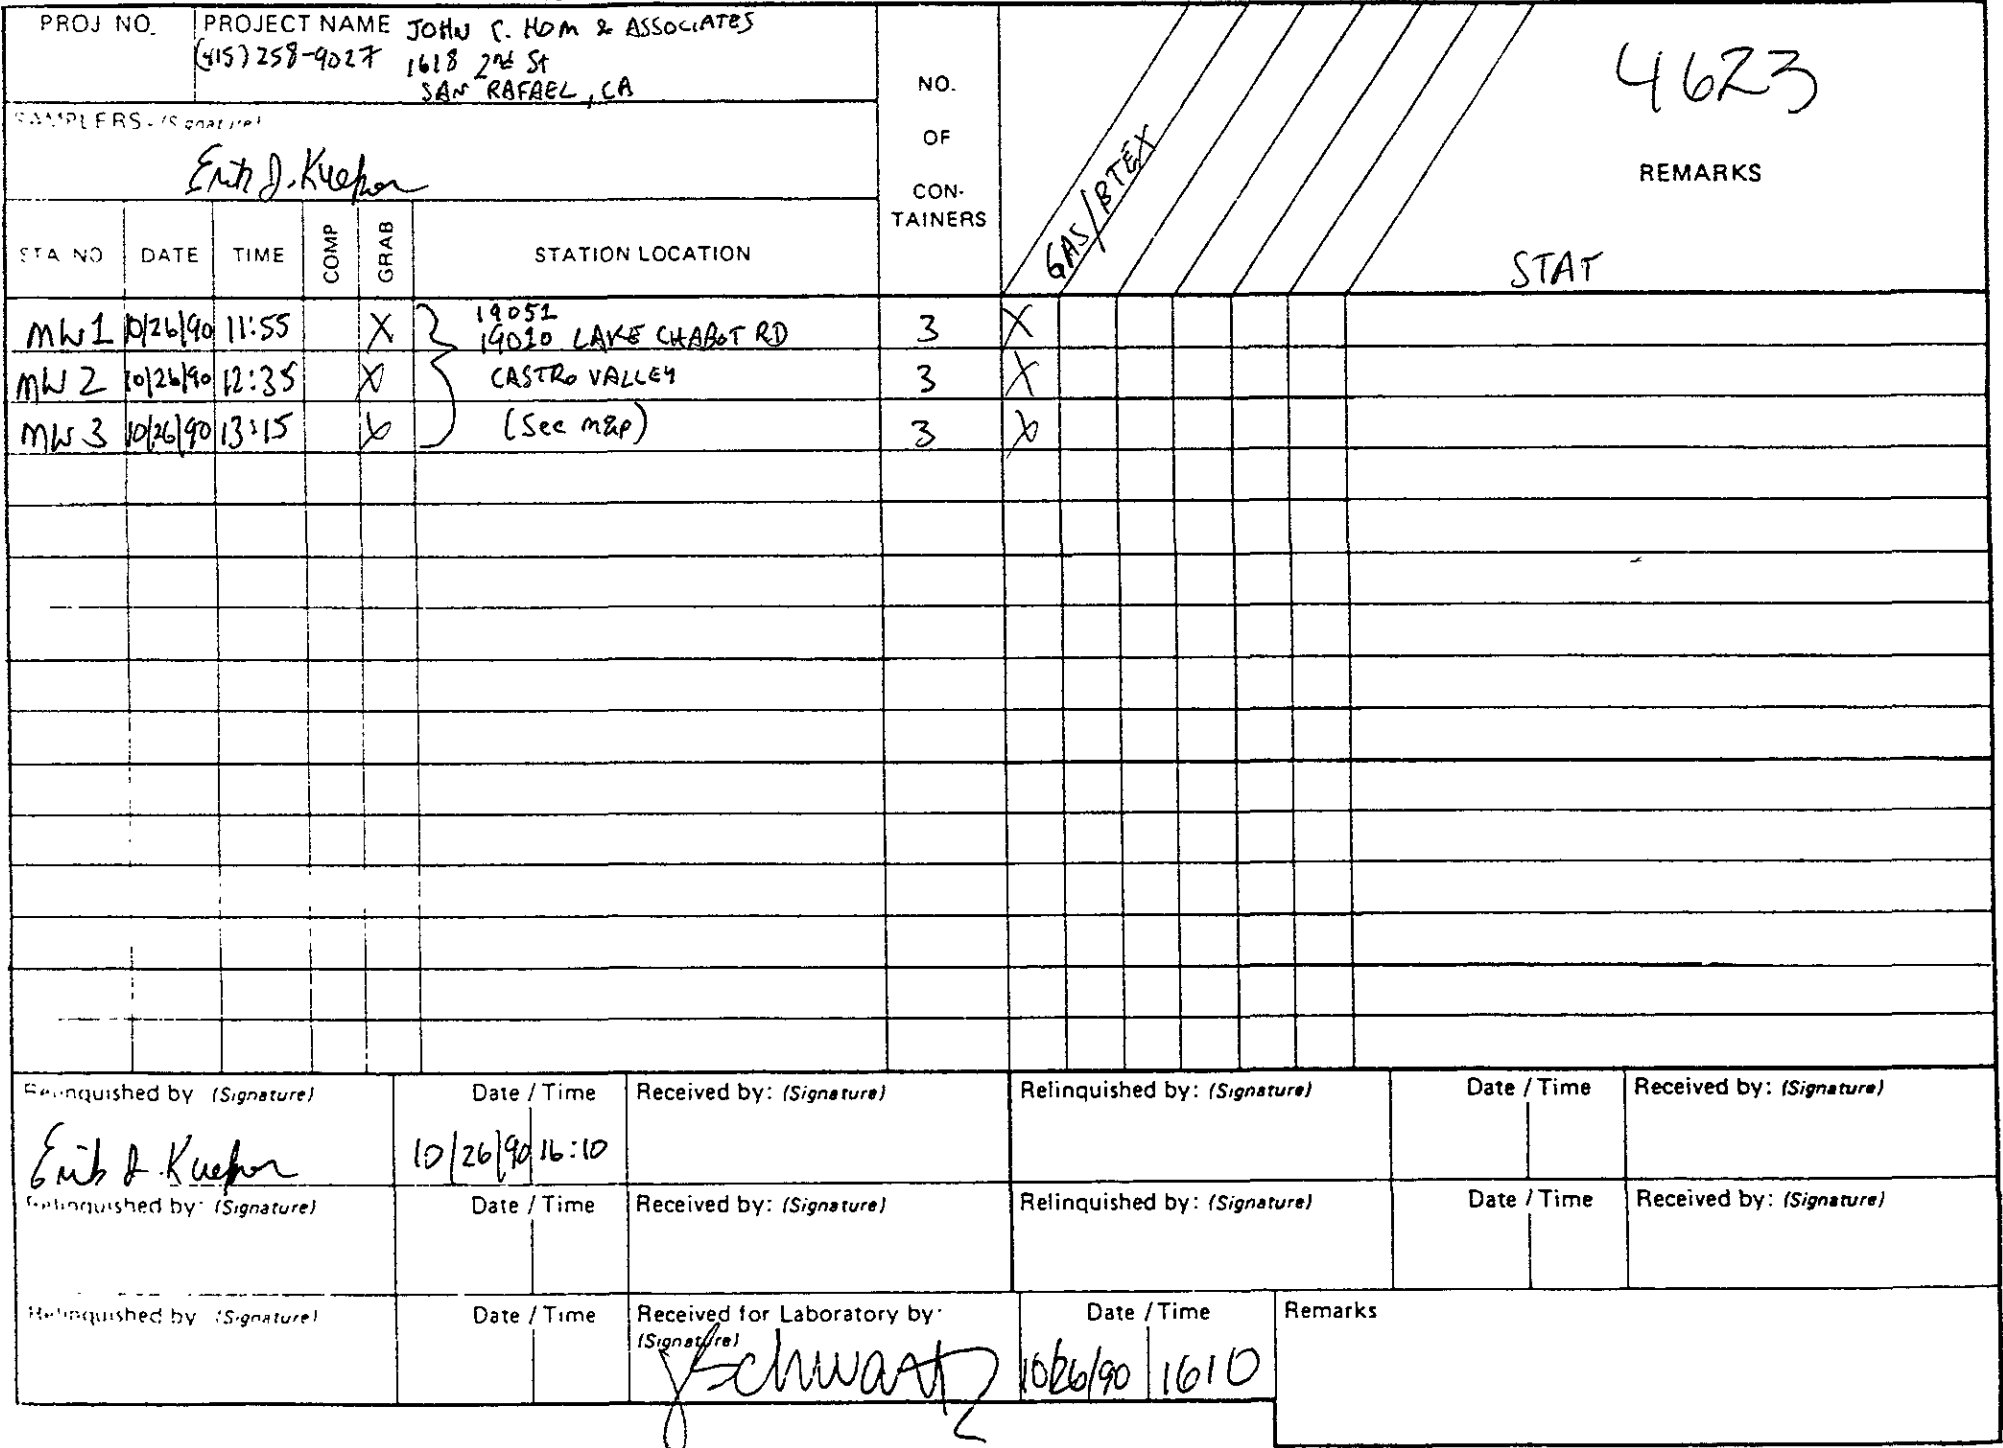 PROJ NO. PROJECT NAME JOHN C. HOM & ASSOCIATES
(415) 258-9027 1618 2nd St
SAN RAFAEL, CA
SAMPLERS (Signature)
NO.
OF
CON-
TAINERS
GAS/BTEX
4623
REMARKS
STAT
STA NO DATE TIME COMP GRAB STATION LOCATION
19051
MW1 10/26/90 11:55 X 19020 LAKE CHABOT RD 3 X
MW2 10/26/90 12:35 X CASTRO VALLEY 3 X
MW3 10/26/90 13:15 X (See map) 3 X
Relinquished by (Signature) Date / Time Received by: (Signature) Relinquished by: (Signature) Date / Time Received by: (Signature)
10/26/90 16:10
Relinquished by: (Signature) Date / Time Received by: (Signature) Relinquished by: (Signature) Date / Time Received by: (Signature)
Relinquished by (Signature) Date / Time Received for Laboratory by: Date / Time Remarks
(Signature)
Schwartz 10/26/90 1610